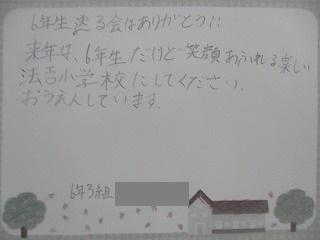 6年生送る会はありがとう!!
来年は、6年生だけど笑顔あふれる楽しい
法吉小学校にしてください。
おうえんしています。
6年3組